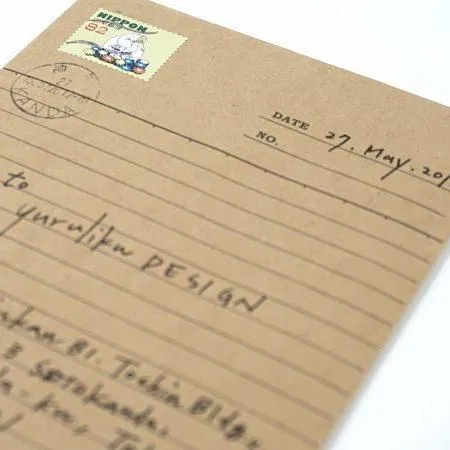 NIPPON
82
KANDA
DATE 27. May. 201
NO.
to
yuruliku DESIGN
kan B1. Toshin Bldg.
Sotokanda.
da-ku,